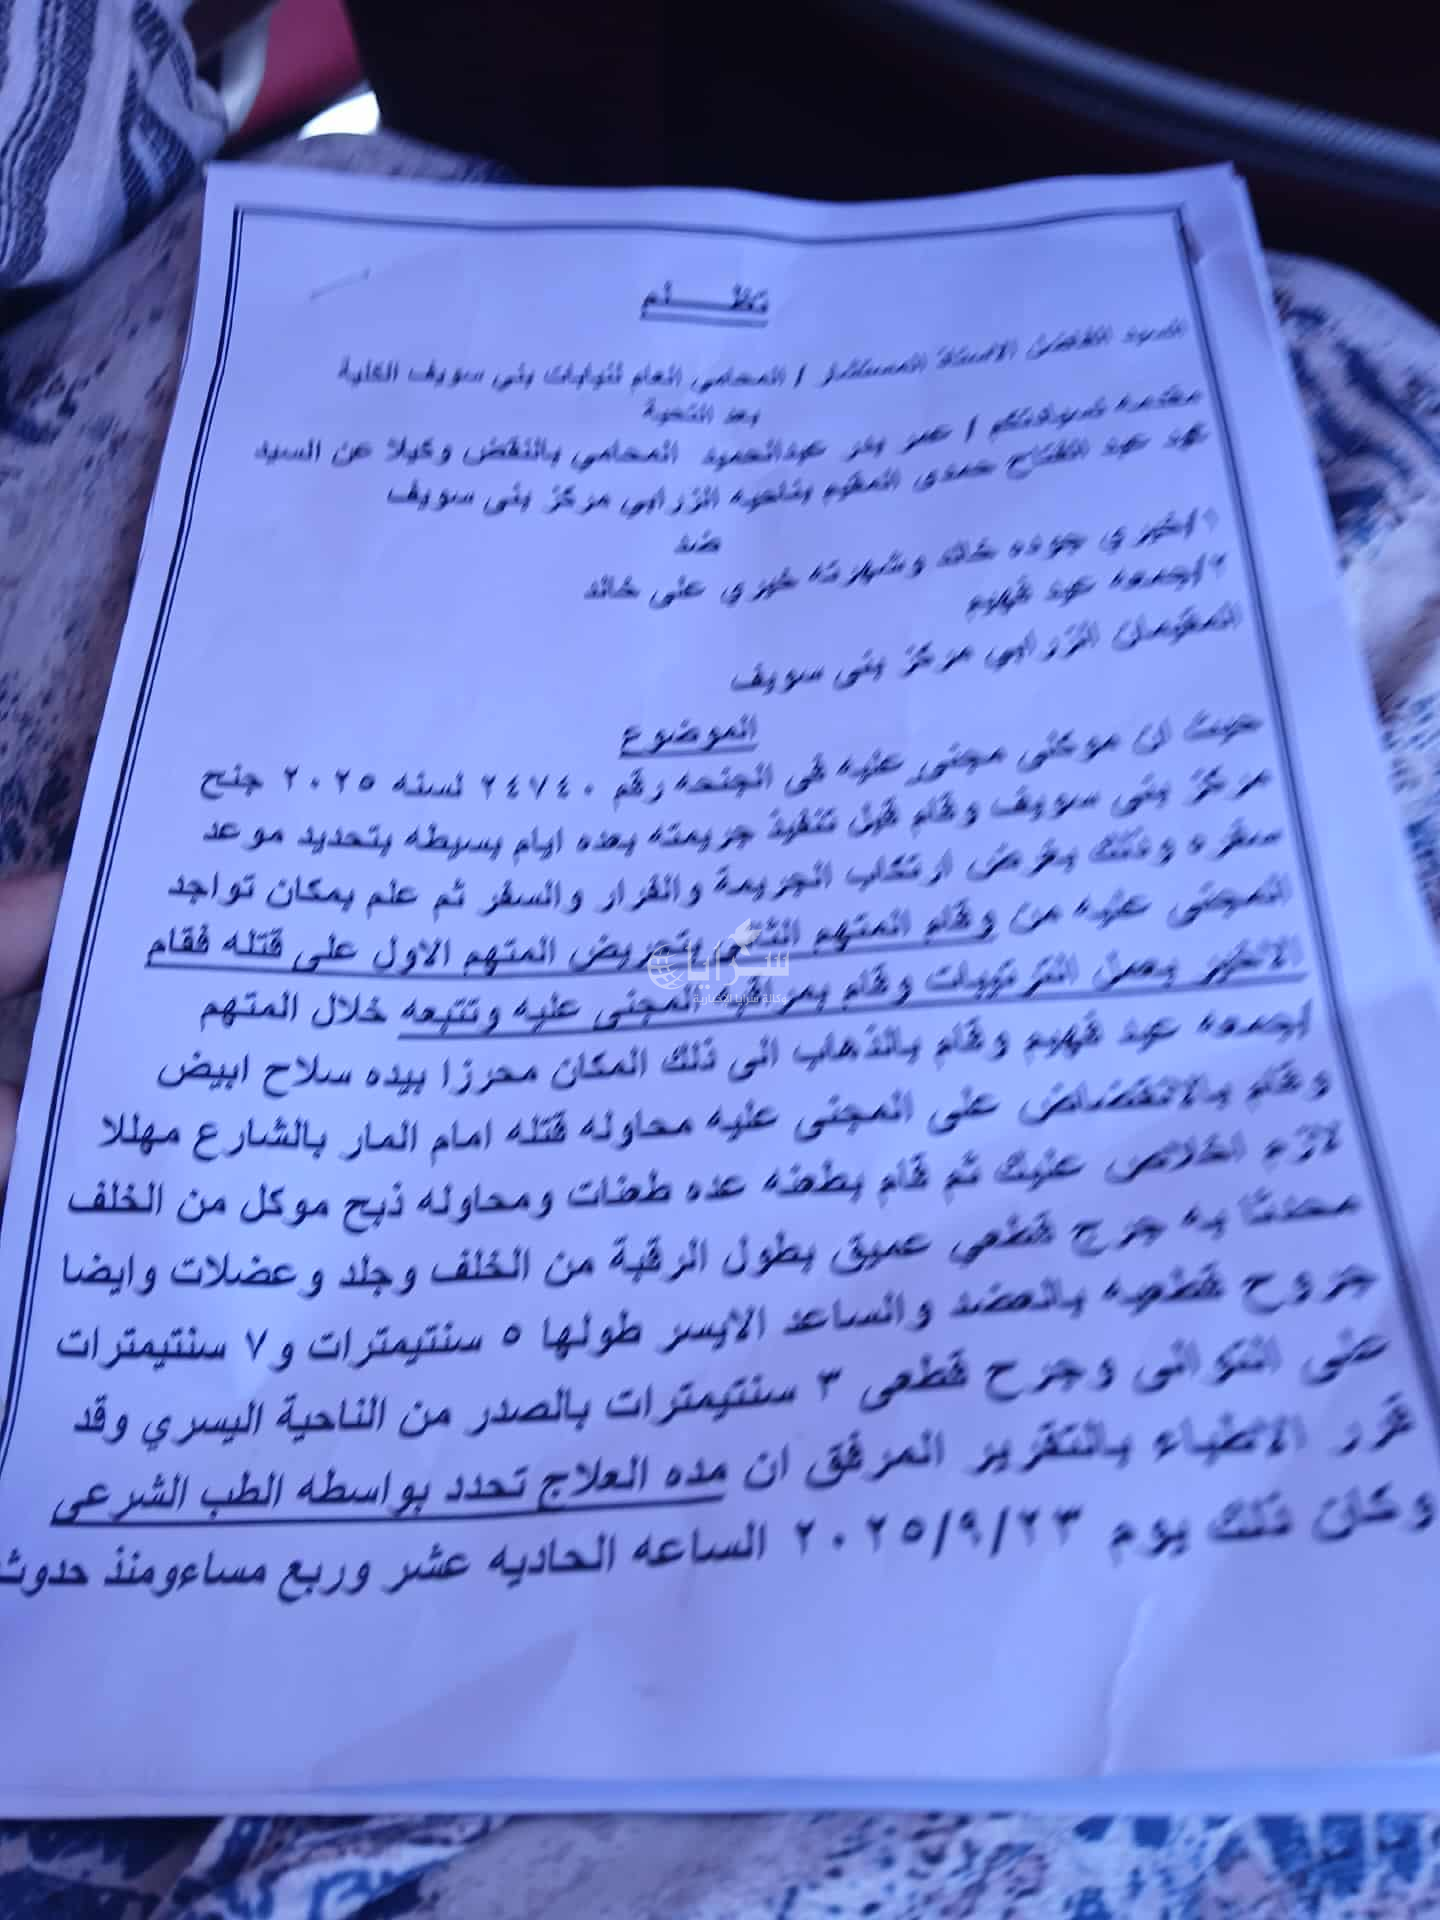 تظـــــلم
السيد القاضى الاستاذ المستشار / المحامى العام لنيابات بنى سويف الكلية
بعد التحية
مقدمه لسيادتكم / عمر بدر عبدالحميد المحامي بالنقض وكيلا عن السيد
عيد عبد الفتاح حمدى المقيم بناحيه الزرابي مركز بنى سويف
ضد
١/خيري جوده خالد وشهرته خيري على خالد
٢/جمعه عيد فهيم
المقيمان الزرابي مركز بنى سويف
الموضوع
حيث ان موكلى مجنى عليه فى الجنحه رقم ٢٤٧٤٠ لسنه ٢٠٢٥ جنح
مركز بنى سويف وقام قبل تنفيذ جريمته بعده ايام بسيطه بتحديد موعد
سفره وذلك بغرض ارتكاب الجريمة والفرار والسفر ثم علم بمكان تواجد
المجنى عليه من وقام المتهم الثانى بتحريض المتهم الاول على قتله فقام
الاخير بعمل الترتيبات وقام بمراقبه المجنى عليه وتتبعه خلال المتهم
/جمعه عيد فهيم وقام بالذهاب الى ذلك المكان محرزا بيده سلاح ابيض
وقام بالانقضاض على المجنى عليه محاوله قتله امام المار بالشارع مهللا
لازم اخلاص عليك ثم قام بطعنه عده طعنات ومحاوله ذبح موكل من الخلف
محدثا به جرح قطعي عميق بطول الرقبة من الخلف وجلد وعضلات وايضا
جروح قطعيه بالعضد والساعد الايسر طولها ٥ سنتيمترات و٧ سنتيمترات
على التوالى وجرح قطعى ٣ سنتيمترات بالصدر من الناحية اليسري وقد
قرر الاطباء بالتقرير المرفق ان مده العلاج تحدد بواسطه الطب الشرعى
وكان ذلك يوم ٢٠٢٥/٩/٢٣ الساعه الحاديه عشر وربع مساءومنذ حدوث
سرايا
وكالة سرايا الإخبارية